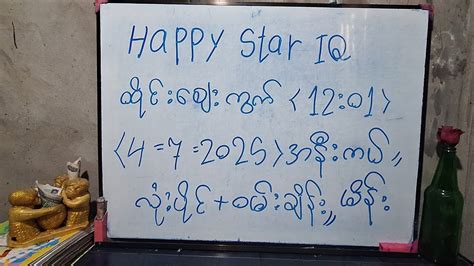 Happy Star IQ
ထိုင်းဈေးကွက် <12:01>
<4=7=2025> အနီးကပ်"
လုံးပိုင်+စမ်းချိန်း" ထိန်း